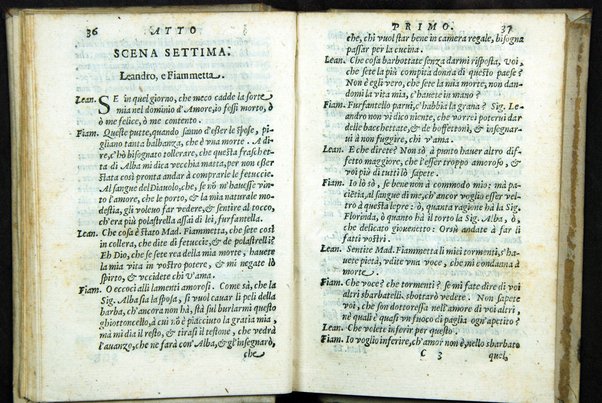 36 ATTO
SCENA SETTIMA.
Leandro, e Fiammetta.
Lean. SE in quel giorno, che meco cadde la sorte
mia nel dominio d'Amore, io fossi morto, ò
ò me felice, ò me contento.
Fiam. Queste putte, quando sanno d'esser le spose, pi-
gliano tanta baldanza, che è vna morte. A di-
re, c'hò bisognato tollerare, che questa fraschet-
ta di Alba mi dica vecchia matta, per non esser
stata così pronta andar à comprarle le fetuccie.
Al sangue del Diauolo, che, se nō m'hauesse vin-
to l'amore, che le porto, & la mia naturale mo-
destia, gli voleuo far vedere, & sentire al tocco,
ch'era più polastrella assai di lei, furfantella.
Lean. Che cosa è stato Mad. Fiammetta, che sete così
in collera, che dite di fetuccie, & de polastrelli?
Eh Dio, che se sete rea della mia morte, hauete
la mia vita in vostro potere, & mi negate lo
spirto, & vccidete chi v'ama.
Fiam. O eccoci alli lamenti amorosi. Come sà, che la
Sig. Alba sia la sposa, si vuol cauar li peli della
barba, ch'ancora non hà, stà sul burlarmi questo
ghiottoncello, à cui nō è piacciuto la gratia mia,
mà mi dia il resto, & tirasi il testone, che vedrà
l'auanzo, che ne farà con'Alba, & gl'insegnarò,
che
PRIMO. 37
che, chi vuol star bene in camera regale, bisogna
passar per la cucina.
Lean. Che cosa barbottate senza darmi risposta, voi,
che sete la più compita donna di questo paese?
Non è egli vero, che la mia morte, non dan-
domi la vita mia, c'hauete in mano?
Fiam. Furfantello parui, c'habbia la grana? Sig. Le-
andro non vi dico niente, che vorrei poterui dar
delle bacchettate, & de boffettoni, & insegnar-
ui à non fuggire, chi v'ama.
Lean. E che direte? Non sò à punto hauer altro dif-
fetto maggiore, che d'esser troppo amoroso, &
voi più di tutti lo sapete.
Fiam. Io lo sò, se bene non à commodo mio; mà pa-
ciētia, al sangue di me, ch'ancor voglio esser vel-
tro à questa lepre: ò, quanta ragione hà la Sig.
Florinda, ò quanto hà il torto la Sig. Alba, ò,
che delicato giouenetto: Orsù andate à far li
fatti vostri.
Lean. Sentite Mad. Fiammetta li miei tormenti, s'ha-
uete pietà, vdite vna voce, che mi condanna à
morte.
Fiam. Che voce? che tormenti? se mi fate dire di voi
altri sbarbatelli, shottarò vedere. Non sapete
voi, che son dottoressa nell'amore di voi altri,
nè quall'è quasi vn fuoco di paglia ogn'apetito?
Lean. Che volete inferir per questo.
Fiam. Io voglio inferire, ch'amor non è, nello sbarbato
C 3 quel,